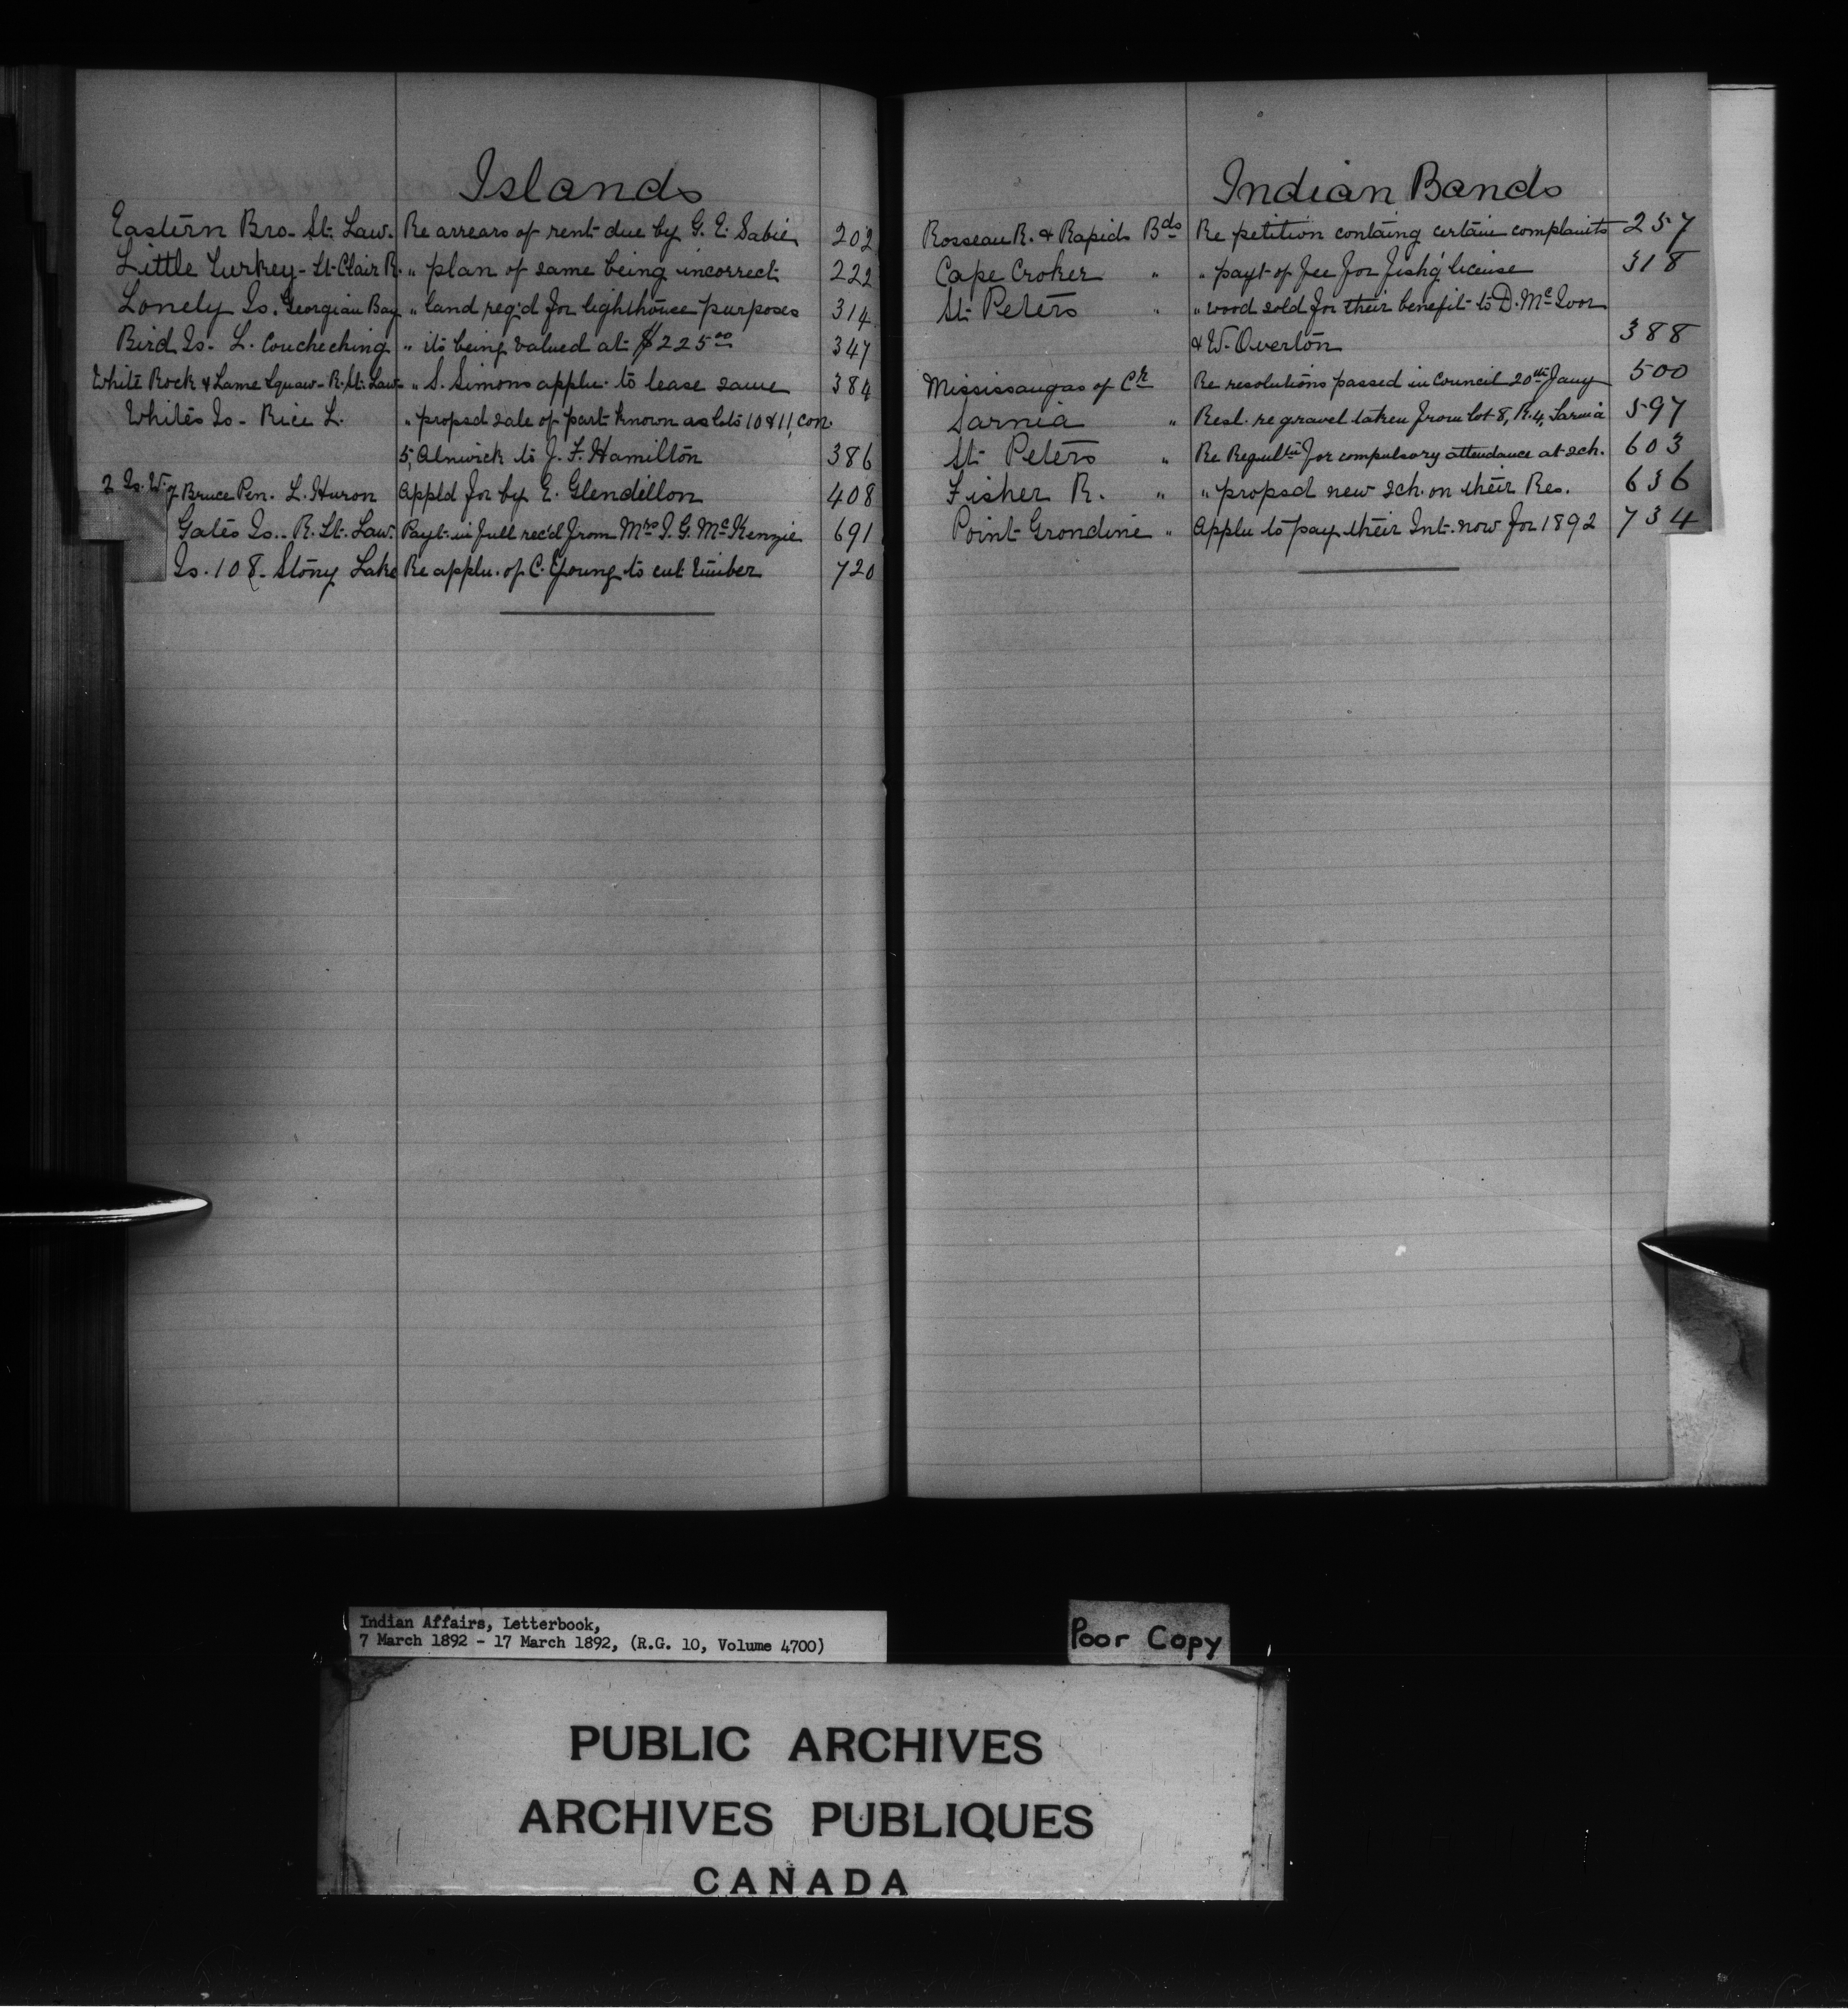 Islands
Eastern Bro- St. Law. Re arrears of rent due by G. E. Sabie 202
Little Turkey - St. Clair R. " plan of same being incorrect 222
Lonely Is. Georgian Bay " land req'd for lighthouse purposes 314
Bird Is- L. Coucheching " its being valued at $225.00 347
White Rock & Lame Squaw- R. St. Law- " S. Simons applu. to lease same 384
Whites Is- Rice L. " propsd sale of part known as lots 10 & 11, con.
5, Alnwick to J. F. Hamilton 386
2 Is. W. of Bruce Pen. L. Huron Appld for by E. Glendillon 408
Gates Is.- R. St. Law. Payt. in full rec'd from Mrs I. G. McKenzie 691
Is. 108- Stony Lake Re applu. of C. Young to cut timber 720
Indian Bands
Rosseau R. & Rapids Bds Re petition containg certain complaints 257
Cape Croker " " payt of fee for fish'g license 318
St. Peters " " wood sold for their benefit to D. McIvor
& W. Overton 388
Mississaugas of Ct. Re resolutions passed in Council 20th Jany 500
Sarnia " Resl. re gravel taken from lot 8, R. 4, Sarnia 597
St. Peters " Re Regultn for compulsory attendance at sch. 603
Fisher R. " " propsd new sch. on their Res. 636
Point Grondine " Applu to pay their Int. now for 1892 734
Indian Affairs, Letterbook,
7 March 1892 - 17 March 1892, (R.G. 10, Volume 4700)
Poor Copy
PUBLIC ARCHIVES
ARCHIVES PUBLIQUES
CANADA